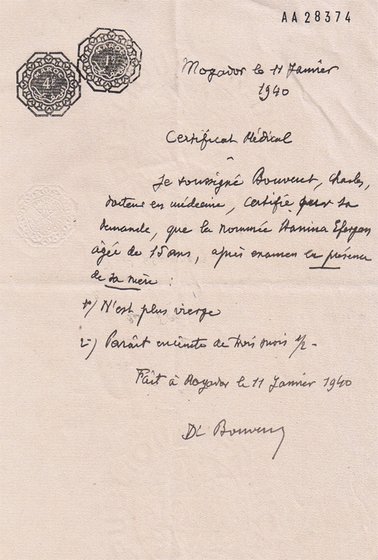 AA28374
Mogador le 11 Janvier
1940
Certificat Médical
Je soussigné Bouveret, Charles,
docteur en médecine, certifie sur sa
demande, que la nommée Hanina
agée de 15 ans, après examen en présence
de sa mère :
1°/ N'est plus vierge
2°/ Paraît enceinte de trois mois 1/2 -
Fait à Mogador le 11 Janvier 1940
Dr Bouveret